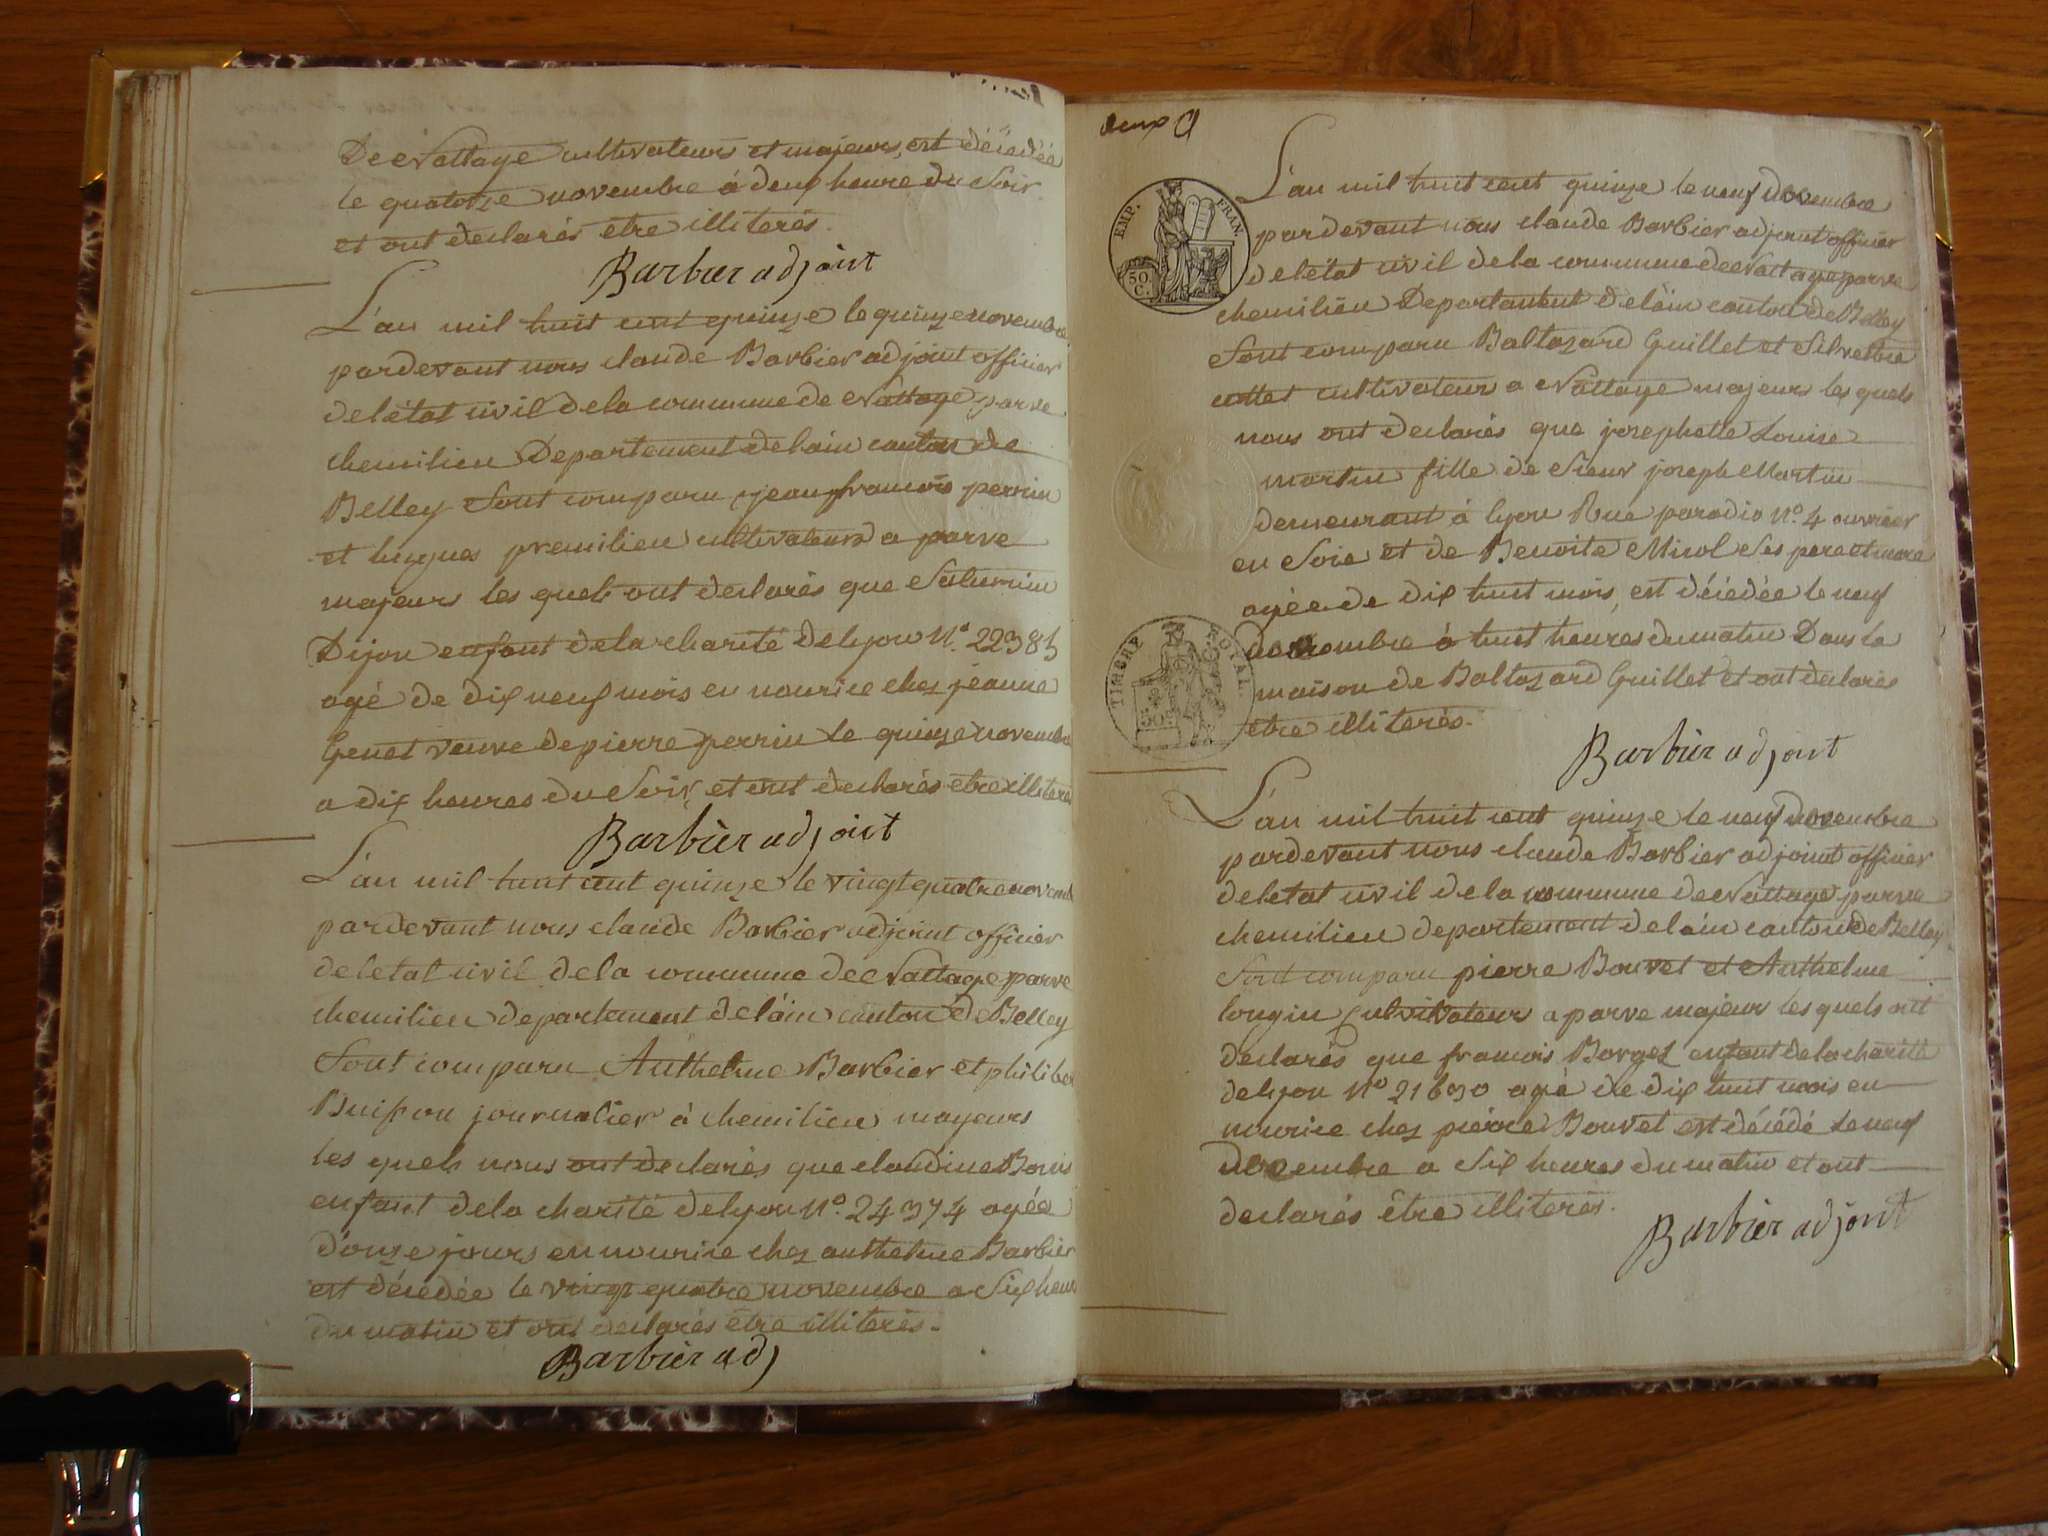 De Nattage cultivateurs et majeurs, est décédée
le quatorze novembre à deux heure du Soir
et ont declarés être illiterés.
Barbier adjoint
L'an mil huit cent quinze le quinze novembre
pardevant nous claude Barbier adjoint officier
del'état civil dela commune de Nattage parve
chemilieu Departement delain canton de
Belley Sont comparu jean francois perrin
et hugues premilieu cultivateurs a parve
majeurs les quels ont declarés que Saturnin
Dijon enfant dela charité delyon N.º 22385
agé de dix neuf mois en nourice chez jeanne
Genet veuve de pierre perrin le quinze novembre
a dix heures du Soir, et ont declarés etre illiteré
Barbier adjoint
L'an mil huit cent quinze le vingt quatre novemb
pardevant nous claude Barbier adjoint officier
deletat civil dela commune de Nattage parve
chemilieu departement delain canton de Belley
Sont comparu Anthelme Barbier et philiber
Buisson journalier à chemilieu mayeurs
les quels nous ont declarés que claudine Bonis
enfant dela charité delyon N.º 24374 agée
d'onze jours en nourice chez anthelme Barbier
est décédée le vingt quatre novembre a Six heur
du matin et ont declarés être illiterés.
Barbier adj
deux
EMP. FRAN.
50 C.
L'an mil huit cent quinze le neuf Decembre
pardevant nous claude Barbier adjoint officier
del'état civil dela commune de Nattage parve
chemilieu Departement delain canton de Belley
Sont comparu Baltazard Guillet et Silvestre
cultivateurs a Nattage majeurs les quels
nous ont declarés que josephette Louise
martin fille de Sieur joseph Martin
demeurant à lyon Rue paradis N.º 4 ouvrier
en Soie et de Benoite Mirol Ses pere et mere
agée de dix huit mois, est décédée le neuf
decembre à huit heures du matin Dans la
TIMBRE ROYAL.
50
maison de Baltazard Guillet et ont declarés
être illiterés.
Barbier adjoint
L'an mil huit cent quinze le neuf decembre
pardevant nous claude Barbier adjoint officier
deletat civil dela commune de Nattage parve
chemilieu departement delain canton de Belley
Sont comparu pierre Bouvet et Anthelme
longin Cultivateur a parve majeur les quels ont
declarés que francois Borgez enfant dela charité
delyon Nº 21690 agé de dix huit mois en
nourice chez pierre Bouvet est décédé le neuf
decembre a Six heures du matin et ont
declarés être illiterés.
Barbier adjoint